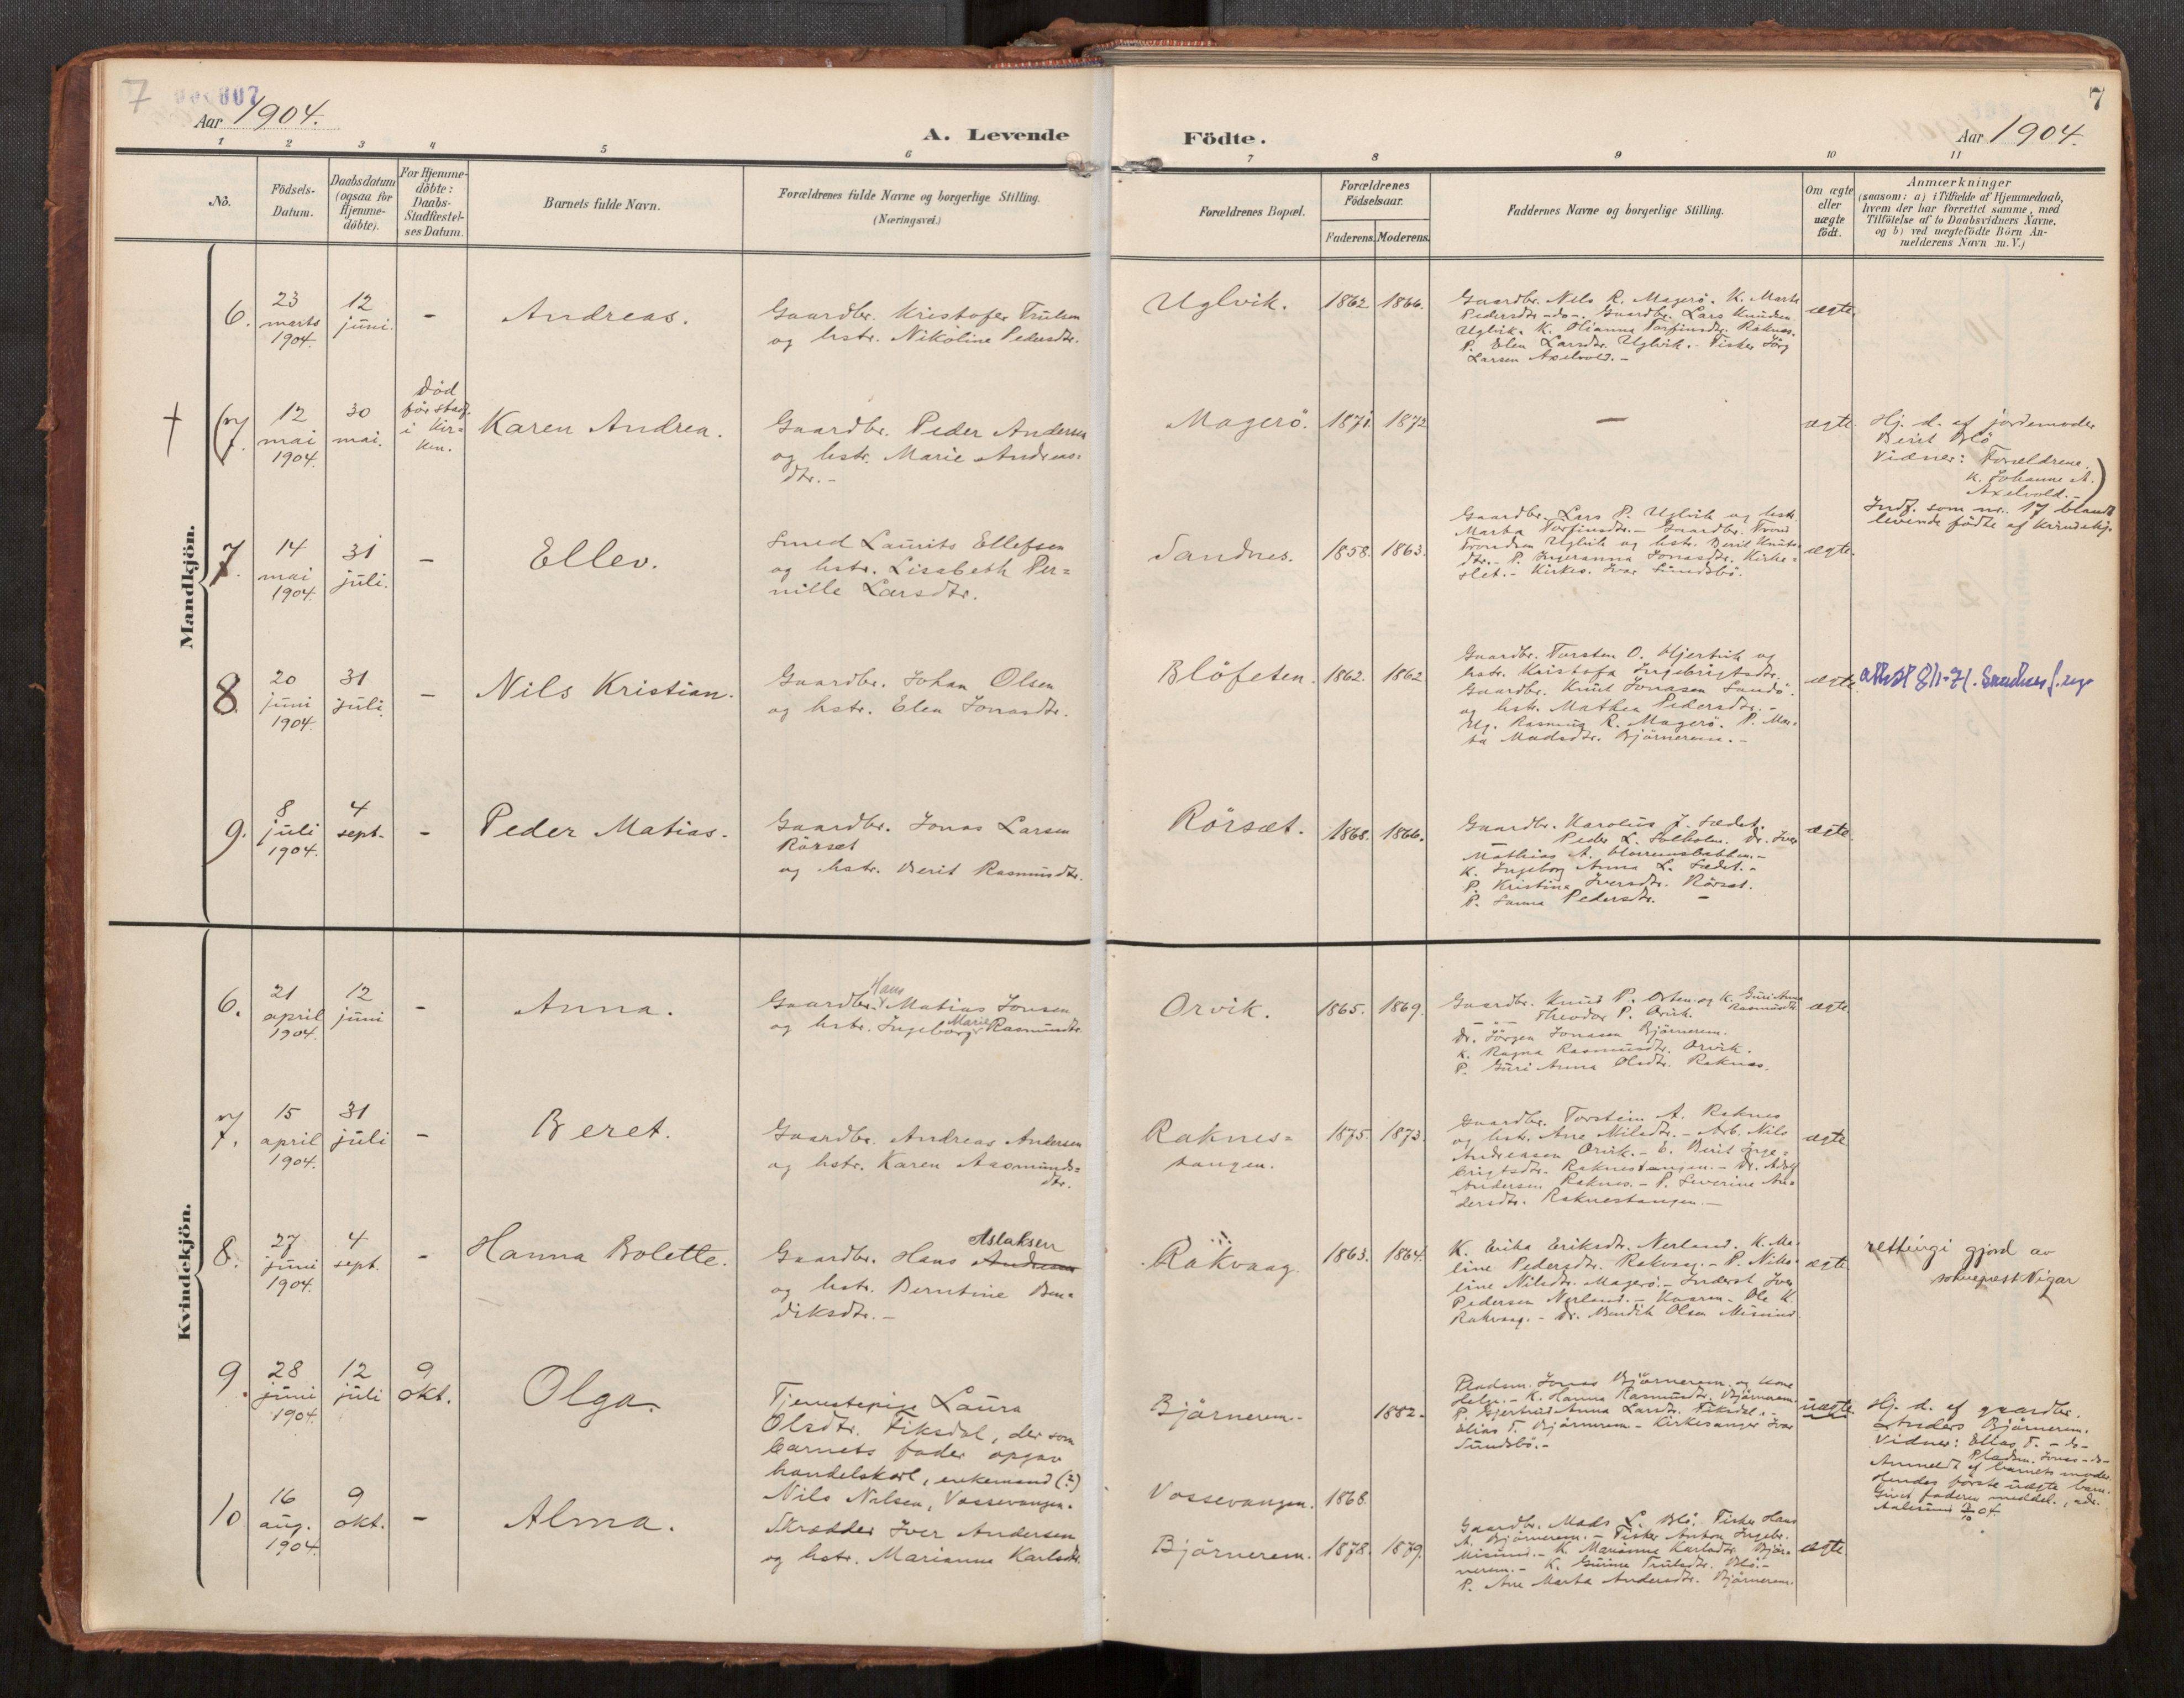 7
007
Aar 1904.
A. Levende
Födte.
Aar 1904.
7
1 2 3 4 5 6 7 8 9 10 11
No.
Födsels-
Datum.
Daabsdatum
(ogsaa for
Hjemme-
döbte).
For Hjemme-
döbte:
Daabs-
Stadfæstel-
ses Datum.
Barnets fulde Navn.
Forældrenes fulde Navne og borgerlige Stilling.
(Næringsvei.)
Forældrenes Bopæl.
Forældrenes
Födselsaar.
Faderens. Moderens.
Faddernes Navne og borgerlige Stilling.
Om ægte
eller
uægte
födt.
Anmærkninger
(saasom: a) i Tilfælde af Hjemmedaab,
hvem der har forrettet samme, med
Tilföielse af to Daabsvidners Navne,
og b) ved uægtefödte Börn An-
melderens Navn m. V.)
Mandkjön.
6.
23
marts
1904.
12
juni.
-
Andreas.
Gaardbr. Kristofer Trulsen
og hstr. Nikoline Pedersdtr.
Uglvik.
1862. 1866.
Gaardbr. Nils R. Magerö. K. Marte
Pedersdtr. -do-. Gaardbr. Lars Knudsen
Uglvik. K. Olianna Torfinsdtr. Raknes.
P. Elen Larsdtr. Uglvik. - Fisker Jörg
Larsen Axelvold. -
ægte.
†
(7.
12
mai
1904.
30
mai.
Död
för stadf.
i kir-
ken.
Karen Andrea.
Gaardbr. Peder Andersen
og hstr. Marie Andreas-
dtr. -
Magerö.
1871. 1872
-
ægte.
Hj. d. af jordemoder
Berit Blö
Vidner: Forældrene.
K. Johanne A.
Axelvold. -)
Indf. som nr. 17 blandt
levende födte af kvindekj.
7.
14
mai
1904.
31
juli.
-
Ellev.
Smed Laurits Ellefsen
og hstr. Lisabeth Per-
nille Larsdtr.
Sandnes.
1858. 1863.
Gaardbr. Lars P. Uglvik og hstr.
Marta Torfinsdtr. - Gaardbr. Trond
Trondsen Uglvik og hstr. Berit Knuts-
dtr. - P. Ingeranna Jonasdtr. Kirke-
slet. - Kirkes. Ivar Sundsbö.
ægte.
8.
20
juni
1904.
31
juli.
-
Nils Kristian.
Gaardbr. Johan Olsen
og hstr. Elen Jonasdtr.
Blöfeten.
1862. 1862
Gaardbr. Torsten O. Hjertvik og
hstr. Kristofa Ingebrigtsdtr.
Gaardbr. Knut Jonasen Sandö.
og hstr. Mathea Pedersdtr. -
Ug. Rasmus R. Magerö. P. Mar-
ta Madsdtr. Björnerem. -
ægte
9.
8
juli
1904.
4
sept.
-
Peder Matias.
Gaardbr. Jonas Larsen
Rörset
og hstr. Berit Rasmusdtr.
Rörsæt.
1868. 1866.
Gaardbr. Karolus J. Sædet.
Peder L. Solholm. Dr. Iver
Mathias A.
K. Ingeborg Anna L. Sædet. -
P. Kristina Iversdtr. Rörset.
P. Sanna Pedersdtr. -
ægte.
Kvindekjön.
6.
21
april
1904.
12
juni
-
Anna.
Gaardbr. Hans Matias Jonsen
og hstr. Ingeborg Marie Rasmusdtr.
Orvik.
1865. 1869.
Gaardbr. Knud P. Orten og K. Guri Anna
Theodor P. Orvik. Rasmusdtr.
Dr. Jörgen Jonasen Björnerem.
K. Ragna Rasmusdtr. Orvik.
P. Guri Anna Olsdtr. Raknes.
ægte.
7.
15
april
1904.
31
juli
-
Beret.
Gaardbr. Andreas Andersen
og hstr. Karen Aasmunds-
dtr.
Raknes-
tangen.
1875. 1873.
Gaardbr. Torstein A. Raknes
og hstr. Ane Nilsdtr. - Arb. Nils
Andreasen Orvik. - E. Berit Inge-
brigtsdtr. Raknestangen. - Dr. Adolf
Andersen Raknes. - P. Severine An-
dersdtr. Raknestangen. -
ægte
8.
27
juni
1904.
4
sept.
-
Hanna Bolette.
Gaardbr. Hans Aslaksen
og hstr. Berntine Ben-
diksdtr. -
Rakvaag.
1863. 1864.
K. Erika Eriksdtr. Nerland. K. Ma-
line Pedersdtr. Rakvaag. - P. Niko-
line Nilsdtr. Magerö. - Inderst Iver
Pedersen Nerland. - Kaarm. Ole K.
Rakvaag. - Dr. Bendik Olsen Misund
ægte.
rettingi gjord av
sokneprest Vigar
9.
28
juni
1904.
12
juli
9
okt.
Olga.
Tjenestepige Laura
Olsdtr. Fiksdal, der som
barnets fader opgav
handelskarl, enkemand (?)
Nils Nilsen, Vossevangen.
Björnerem.
1882.
Vossevangen. 1868.
Pladsm. Jonas Björnerem og kone
Helga. - K. Hanna Rasmusdtr. Björnerem.
P. Gjertrud Anna Larsdtr. Fiksdal. -
Elias T. Björnerem. - Kirkesanger Ivar
Sundsbö. -
uægte.
Hj. d. af gaardbr.
Anders Björnerem.
Vidner: Elias T. -do-
Pladsm. Jonas -do-
Anmeldt af barnets moder.
Hendes förste uægte barn.
Givet faderen meddel., adr.
Aalesund 04.
10
16
aug.
1904.
9
okt.
-
Alma.
Skrædder Iver Andersen
og hstr. Marianna Karlsdtr.
Björnerem.
1878. 1879.
Gaardbr. Mads L. Blö. Fisker Hans
A. Björnerem. - Fisker Anton Ingebr.
Misund. - K. Marianna Karlsdtr. Björ-
nerem. - K. Gurine Trulsdtr. Blö. -
P. Ane Marta Andersdtr. Björnerem.
ægte.